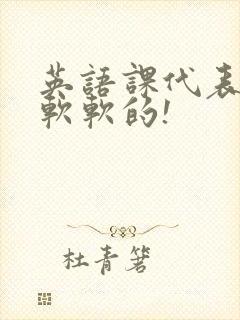 英語課代表
軟軟的!
杜青箬